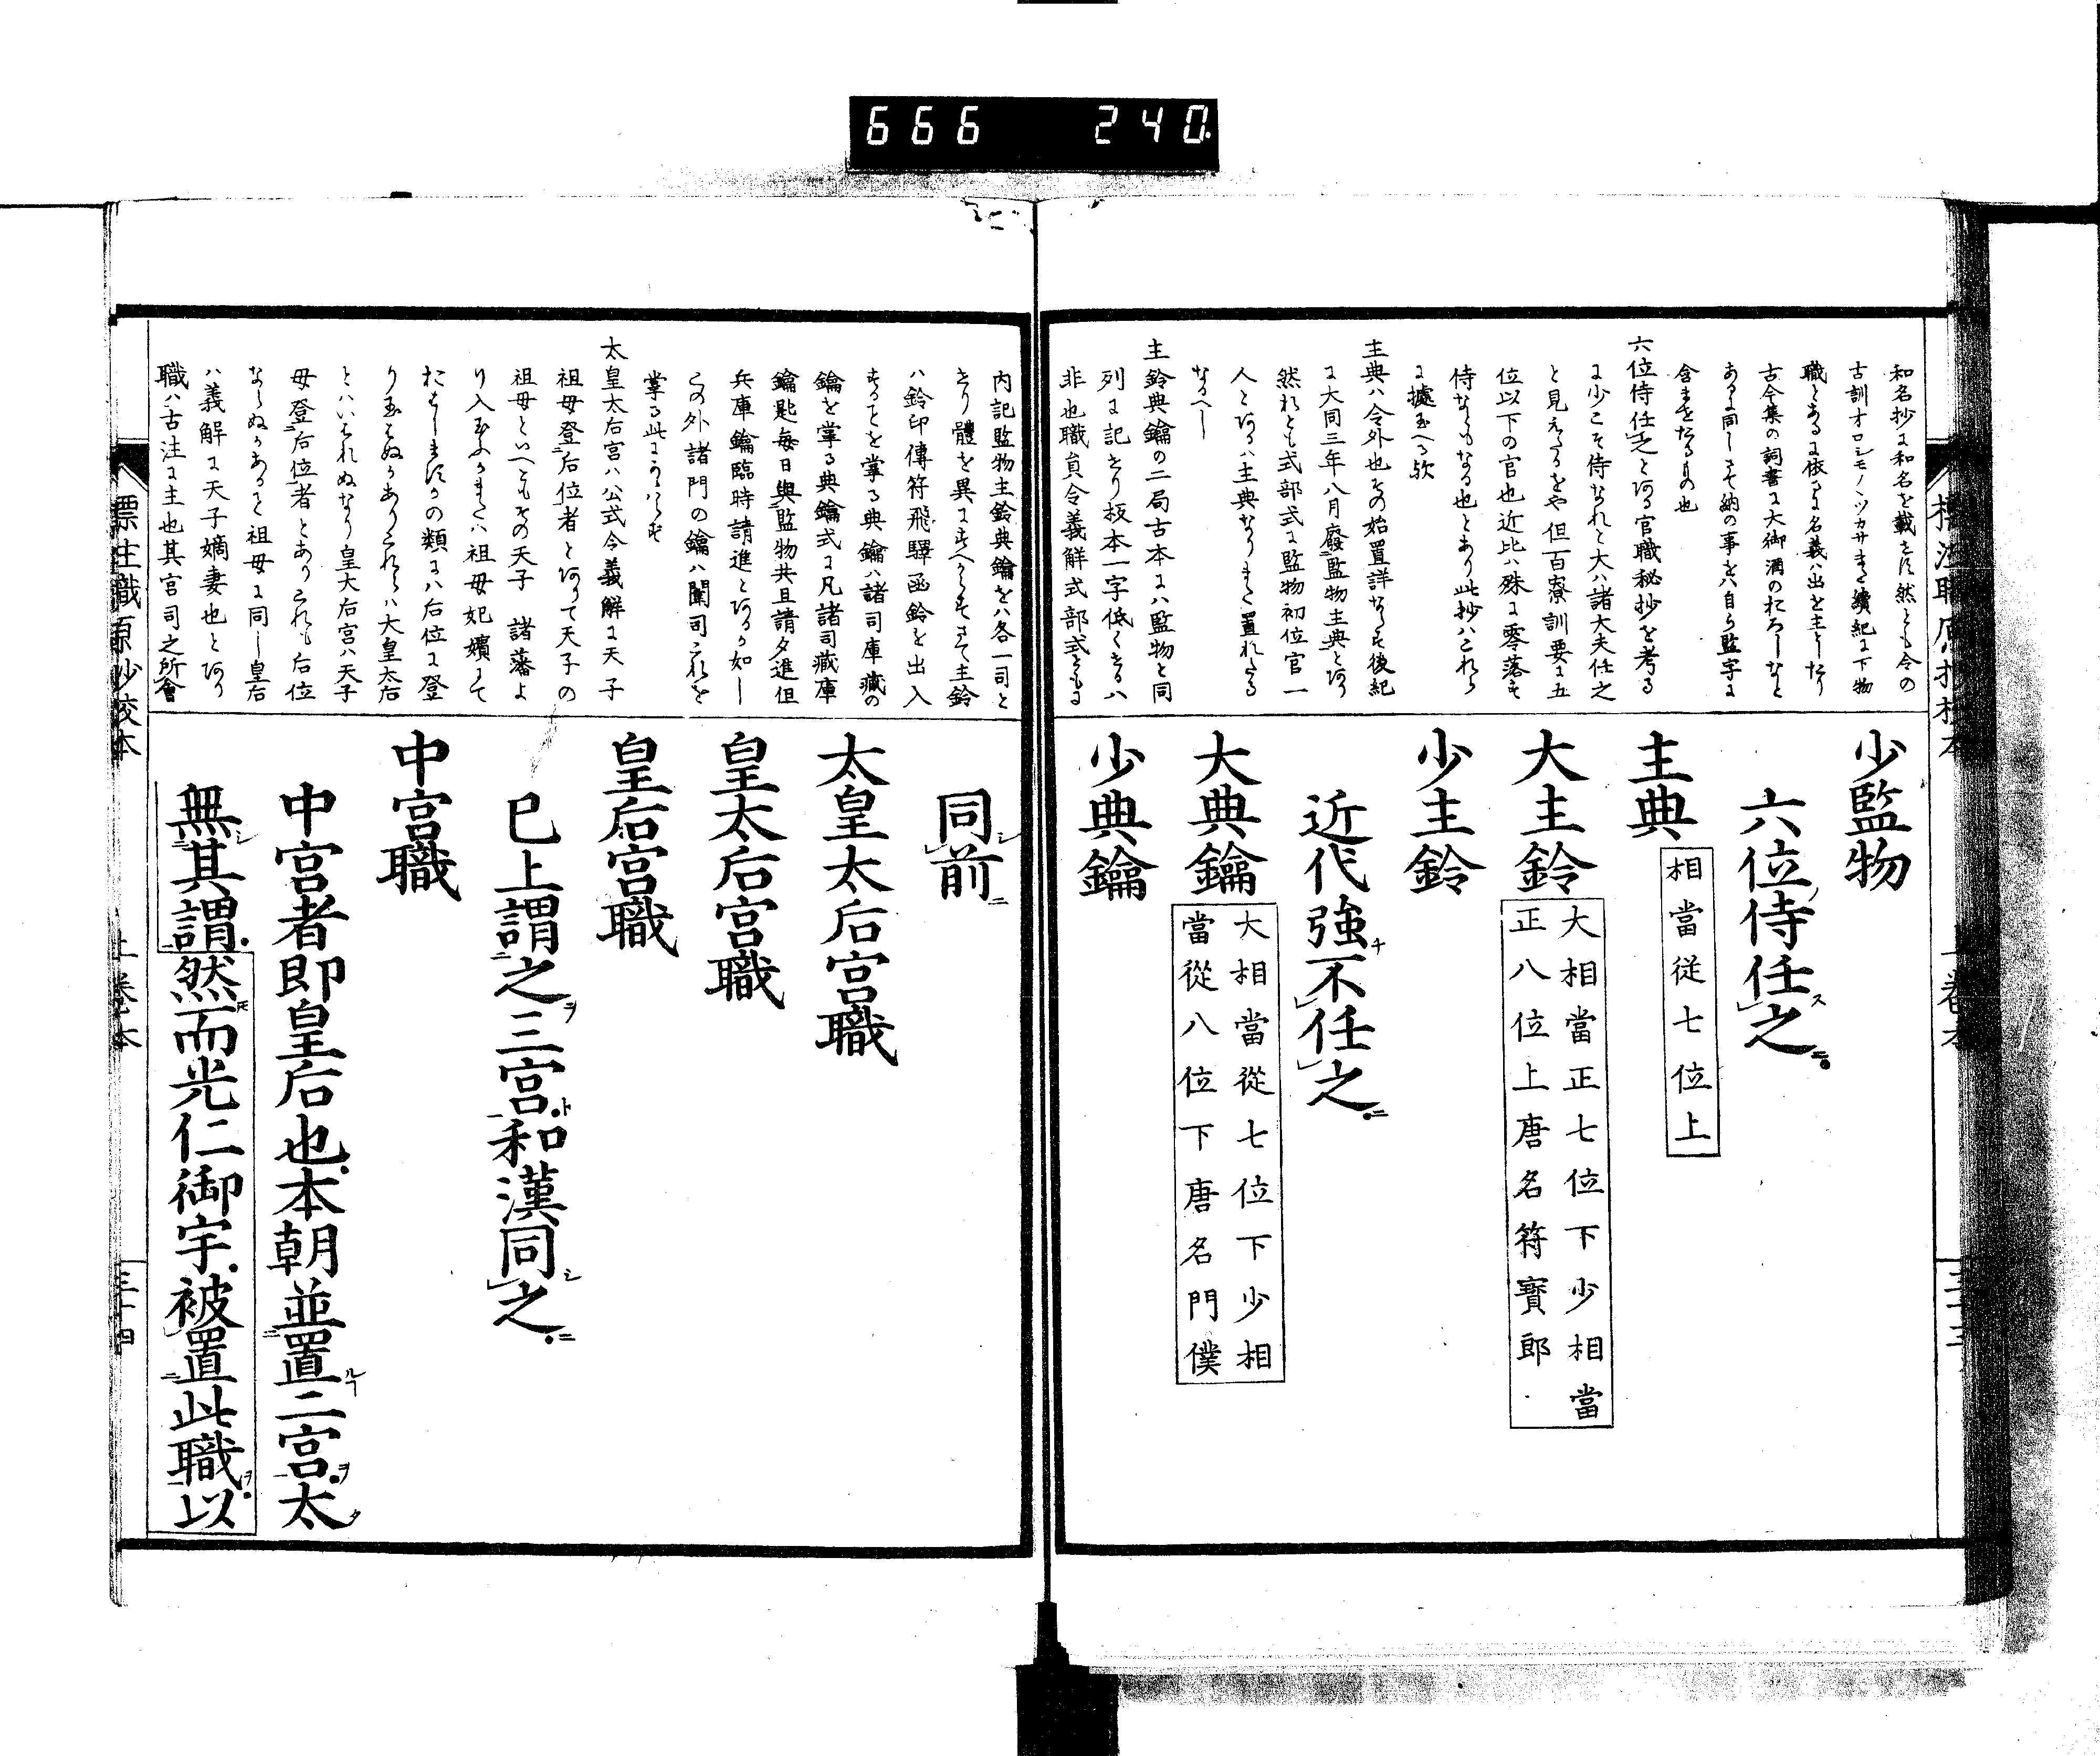 666 240
和名抄に和名を載せす然とも今の
古訓オロシモノノツカサまた續紀に下物
職とあるに依るに名義ハ出を主としたり
古今集の詞書に大御酒のおろしなと
あるに同しさて納の事をハ自ら監字に
含ませたるもの也
六位侍任之とある官職秘抄を考る
に少こそ侍なれと大ハ諸大夫任之
と見えたるをや但百寮訓要に五
位以下の官也近比ハ殊に零落して
侍なともなる也とあり此抄ハこれら
に據玉へる歟
主典ハ令外也その始置詳ならす後紀
に大同三年八月廢監物主典とあり
然れとも式部式に監物初位官一
人とあるハ主典なりまた置れたる
なるへし
主鈴典鑰の二局古本にハ監物と同
列に記せり板本一字低くせるハ
非也職員令義解式部式ともに
少監物
六位侍任之
主典
相當従七位上
大主鈴
大相當正七位下少相當
正八位上唐名符寶郎
少主鈴
近代強不任之
大典鑰
大相當從七位下少相
當從八位下唐名門僕
少典鑰
内記監物主鈴典鑰をハ各一司と
せり體を異にすへからすさて主鈴
ハ鈴印傳符飛驛函鈴を出入
することを掌る典鑰ハ諸司庫藏の
鑰を掌る典鑰式に凡諸司藏庫
鑰匙毎日與監物共旦請夕進但
兵庫鑰臨時請進とあるか如し
この外諸門の鑰ハ闈司これを
掌る此にあつからす
太皇太后宮ハ公式令義解に天子
祖母登后位者とありて天子の
祖母といへともその天子 諸藩よ
り入玉ふかまたハ祖母妃嬪にて
おはしましきの類にハ后位に登
り玉はぬかあり
とハいはれぬなり皇大后宮ハ天子
母登后位者とありこれも后位
ならぬかあること祖母に同し皇后
ハ義解に天子嫡妻也とあり
職ハ古注に主也其宮司之所會
同前
太皇太后宮職
皇太后宮職
皇后宮職
已上謂之三宮和漢同之
中宮職
中宮者即皇后也本朝並置二宮太
無其謂然而光仁御宇被置此職以
標注職原抄校本
上卷本
三十四